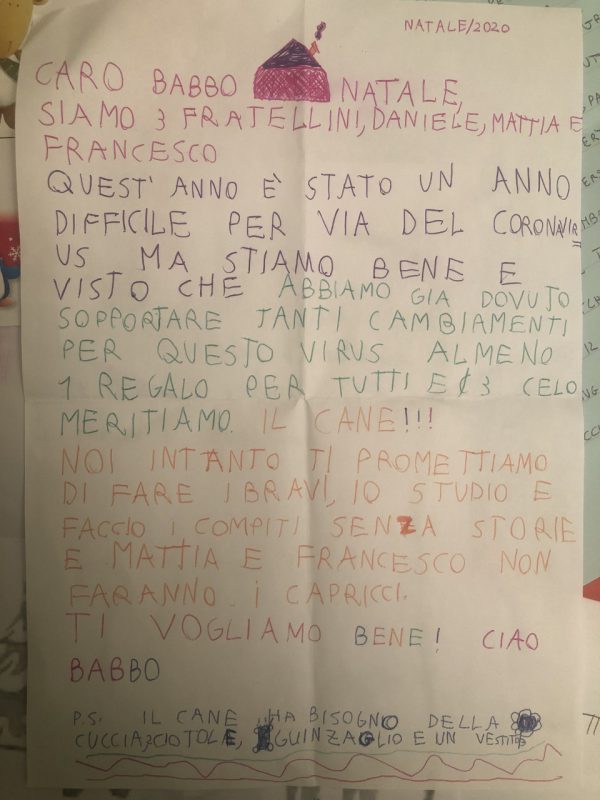 NATALE/2020
CARO BABBO NATALE,
SIAMO 3 FRATELLINI, DANIELE, MATTIA E
FRANCESCO
QUEST' ANNO È STATO UN ANNO
DIFFICILE PER VIA DEL CORONAVIR
US MA STIAMO BENE E
VISTO CHE ABBIAMO GIA DOVUTO
SOPPORTARE TANTI CAMBIAMENTI
PER QUESTO VIRUS ALMENO
1 REGALO PER TUTTI E 3 CELO
MERITIAMO. IL CANE!!!
NOI INTANTO TI PROMETTIAMO
DI FARE I BRAVI, IO STUDIO E
FACCIO I COMPITI SENZA STORIE
E MATTIA E FRANCESCO NON
FARANNO. i CAPRICCI.
TI VOGLIAMO BENE! CIAO
BABBO
P.S. IL CANE HA BISOGNO DELLA
CUCCIA, CIOTOLE, GUINZAGLIO E UN VESTITO